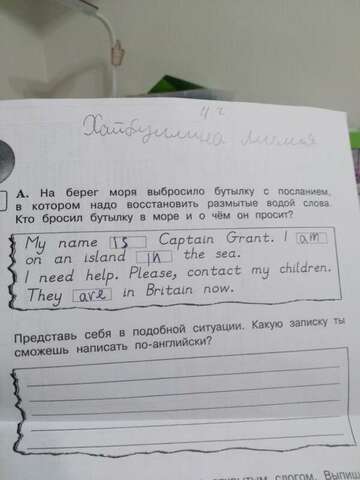 4 г
Хайбуллина
А. На берег моря выбросило бутылку с посланием,
в котором надо восстановить размытые водой слова.
Кто бросил бутылку в море и о чём он просит?
My name is Captain Grant. I am
on an island in the sea.
I need help. Please, contact my children.
They are in Britain now.
Представь себя в подобной ситуации. Какую записку ты
сможешь написать по-английски?
открытым слогом. Выпиш